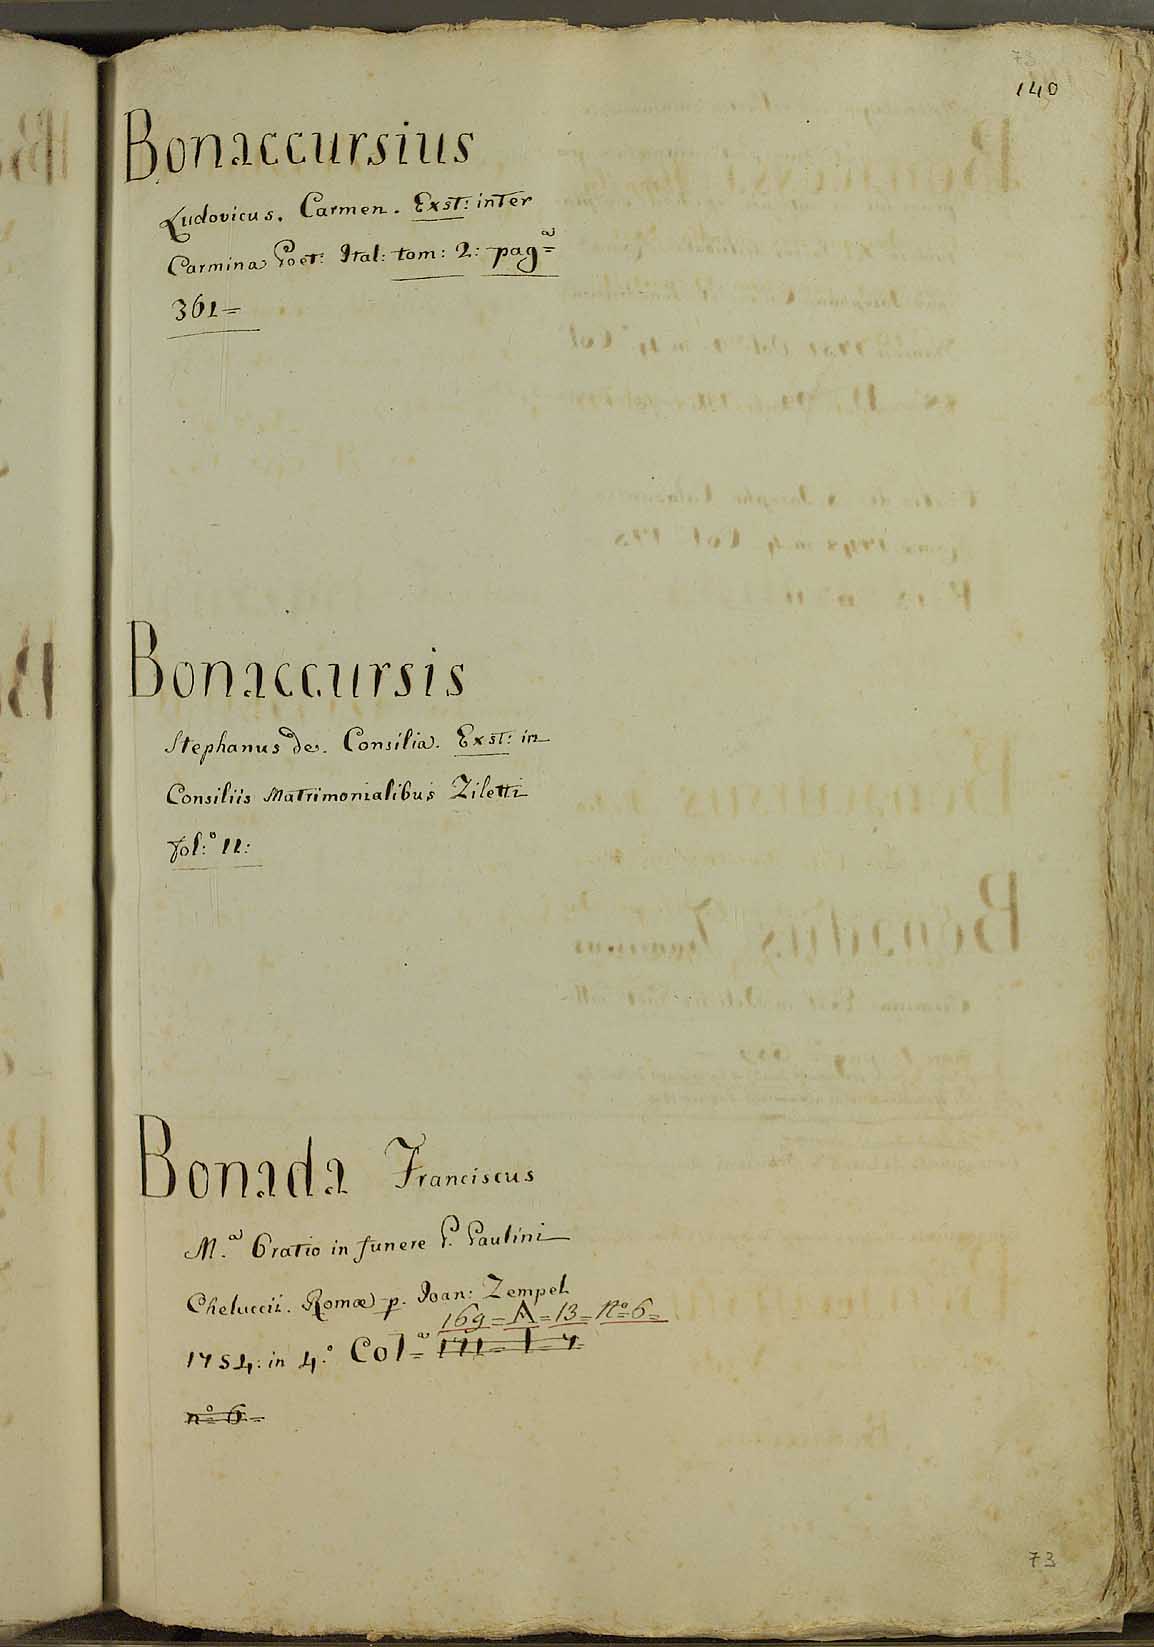 73
140
Bonaccursius
Ludovicus. Carmen. Exst: inter
Carmina Poet: Ital: tom: 2: pagª=
361=
Bonaccursis
Stephanus de. Consilia. Exst: in
Consiliis Matrimonialibus Ziletti
fol:º 11:
Bonada Franciscus
M.ª Oratio in funere P. Paulini
Cheluccii. Romæ p. Joan: Zempel
169=A=13=Nº=6=
1754: in 4.º Colª= 171= I= 7=
nº= 6=
73